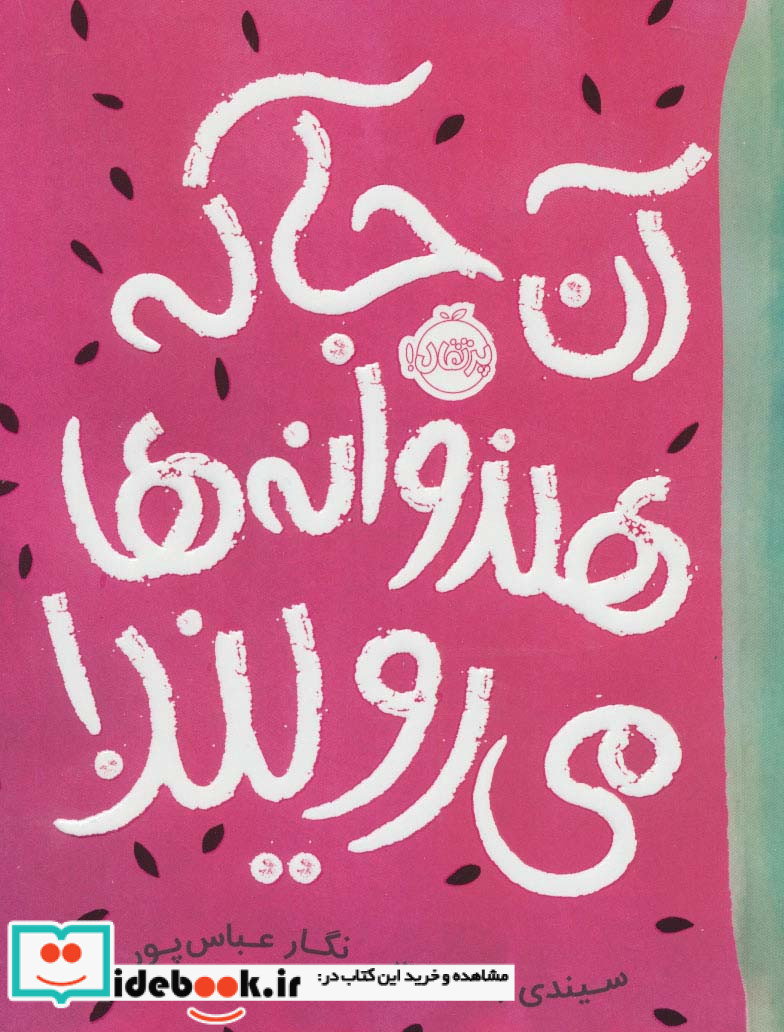 آن جا که
پرتقال!
هندوانه‌ها
می‌رویند!
نگار عباس‌پور
سیندی
مشاهده و خرید این کتاب در:
idebook.ir